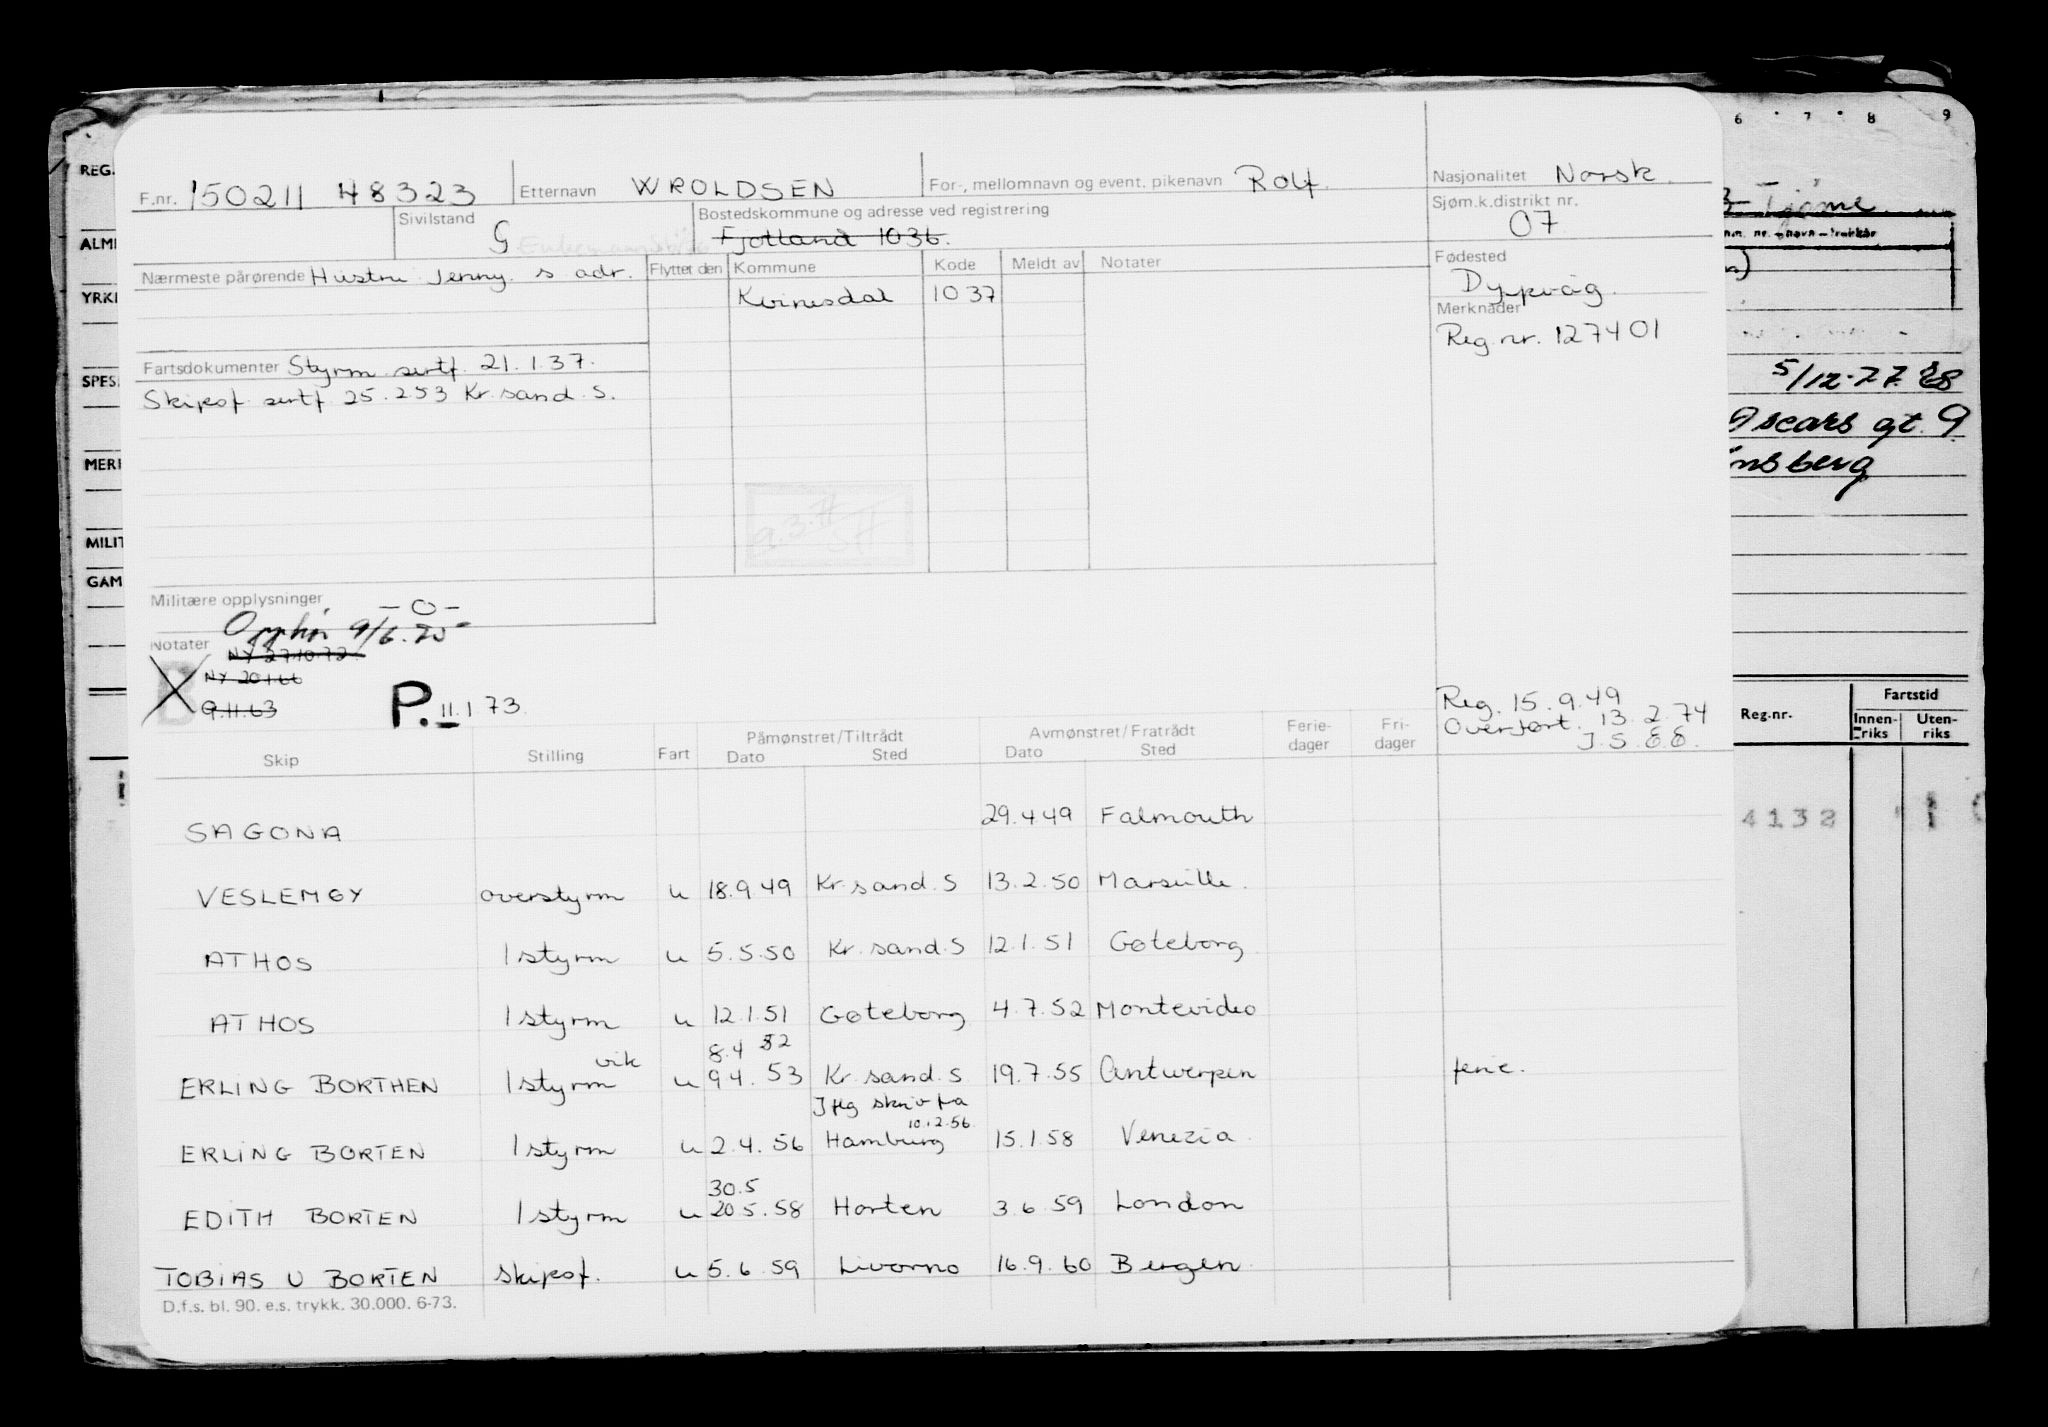 F.nr. 150211 48323 Etternavn WROLDSEN For-, mellomnavn og event. pikenavn Rolf. Nasjonalitet Norsk.
Sivilstand G Bostedskommune og adresse ved registrering Fjotland 1036. Sjøm.k.distrikt nr. 07
Nærmeste pårørende Hustru Jenny. s adr. Flyttet den Kommune Kode Meldt av Notater Fødested Dypvåg.
Kvinesdal 1037
Merknader
Reg.nr. 127401
Fartsdokumenter Styrm sertf. 21.1.37.
Skipsf. sertf. 25.2.53 Kr.sand.S.
Militære opplysninger -0-
Notater Opphør 9/6.75
NY 27.10.72
NY 20166
9.11.63
P. 11.1.73.
Reg. 15.9.49
Overført. 13.2.74
Skip Stilling Fart Påmønstret/Tiltrådt Dato Sted Avmønstret/Fratrådt Dato Sted Ferie-dager Fri-dager
SAGONA 29.4.49 Falmouth
VESLEMØY overstyrm u 18.9.49 Kr.sand.S 13.2.50 Marseille.
ATHOS 1 styrm u 5.5.50 Kr.sand.S 12.1.51 Gøteborg
ATHOS 1 styrm u 12.1.51 Gøteborg 4.7.52 Montevideo
vik 8.4 52
ERLING BORTHEN 1 styrm u 9.4.53 Kr.sand.S. 19.7.55 Antwerpen ferie.
skriv fra
10.2.56.
ERLING BORTEN 1 styrm u 2.4.56 Hamburg 15.1.58 Venezia.
30.5
EDITH BORTEN 1 styrm u 20.5.58 Horten 3.6.59 London
TOBIAS U BORTEN skipsf. u 5.6.59 Livorno 16.9.60 Bergen.
D.f.s. bl. 90. e.s. trykk. 30.000. 6-73.
REG.
ALM
YRK
SPES
MER
MILIT
GAM
6 7 8 9
Tjøme
5/12-77
Oscars gt. 9
nsberg
Reg.nr. Fartstid
Innen-riks Uten-riks
4132